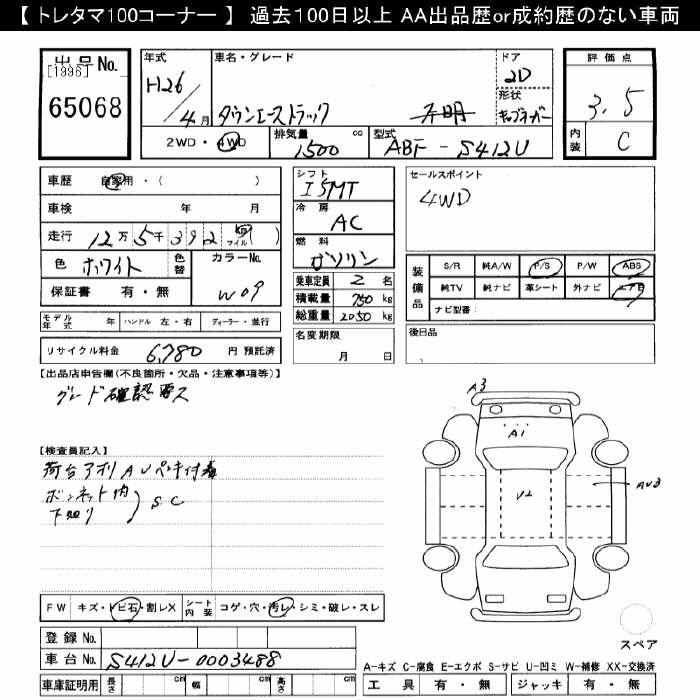 【 トレタマ100コーナー 】 過去100日以上 AA出品歴or成約歴のない車両
出品 No.
[1996]
65068
年式
H26/4月
車名・グレード
タウンエーストラック 不明
ドア
2D
形状
キャブオーバー
2WD・4WD
排気量 cc
1500
型式
ABF-S412U
評価点
3.5
内装
C
車歴 自家用・( )
車検 年 月
走行 12万5千392 km マイル ( )
色 ホワイト 色替 カラーNo. W09
保証書 有・無
モデル年式 年 ハンドル 左・右 ディーラー・並行
リサイクル料金 6,780 円 預託済
シフト
I5MT
冷房
AC
燃料
ガソリン
乗車定員 2 名
積載量 750 kg
総重量 2050 kg
名変期限
月 日
セールスポイント
4WD
装備品
S/R 純A/W P/S P/W ABS
純TV 純ナビ 革シート 外ナビ エアB
ナビ型番:
後日品
【出品店申告欄(不良箇所・欠品・注意事項等)】
グレード確認要ス
【検査員記入】
荷台アオリAUペンキ付着
ボンネット内
下回り
SC
A3
A1
U2
AU3
FW キズ・トビ石・割レX シート内装 コゲ・穴・汚レ・シミ・破レ・スレ
登録 No.
車台 No. S412U-0003488
車庫証明用 長さ cm 幅 cm 高さ cm
スペア
A-キズ C-腐食 E-エクボ S-サビ U-凹ミ W-補修 XX-交換済
工具 有・無 ジャッキ 有・無